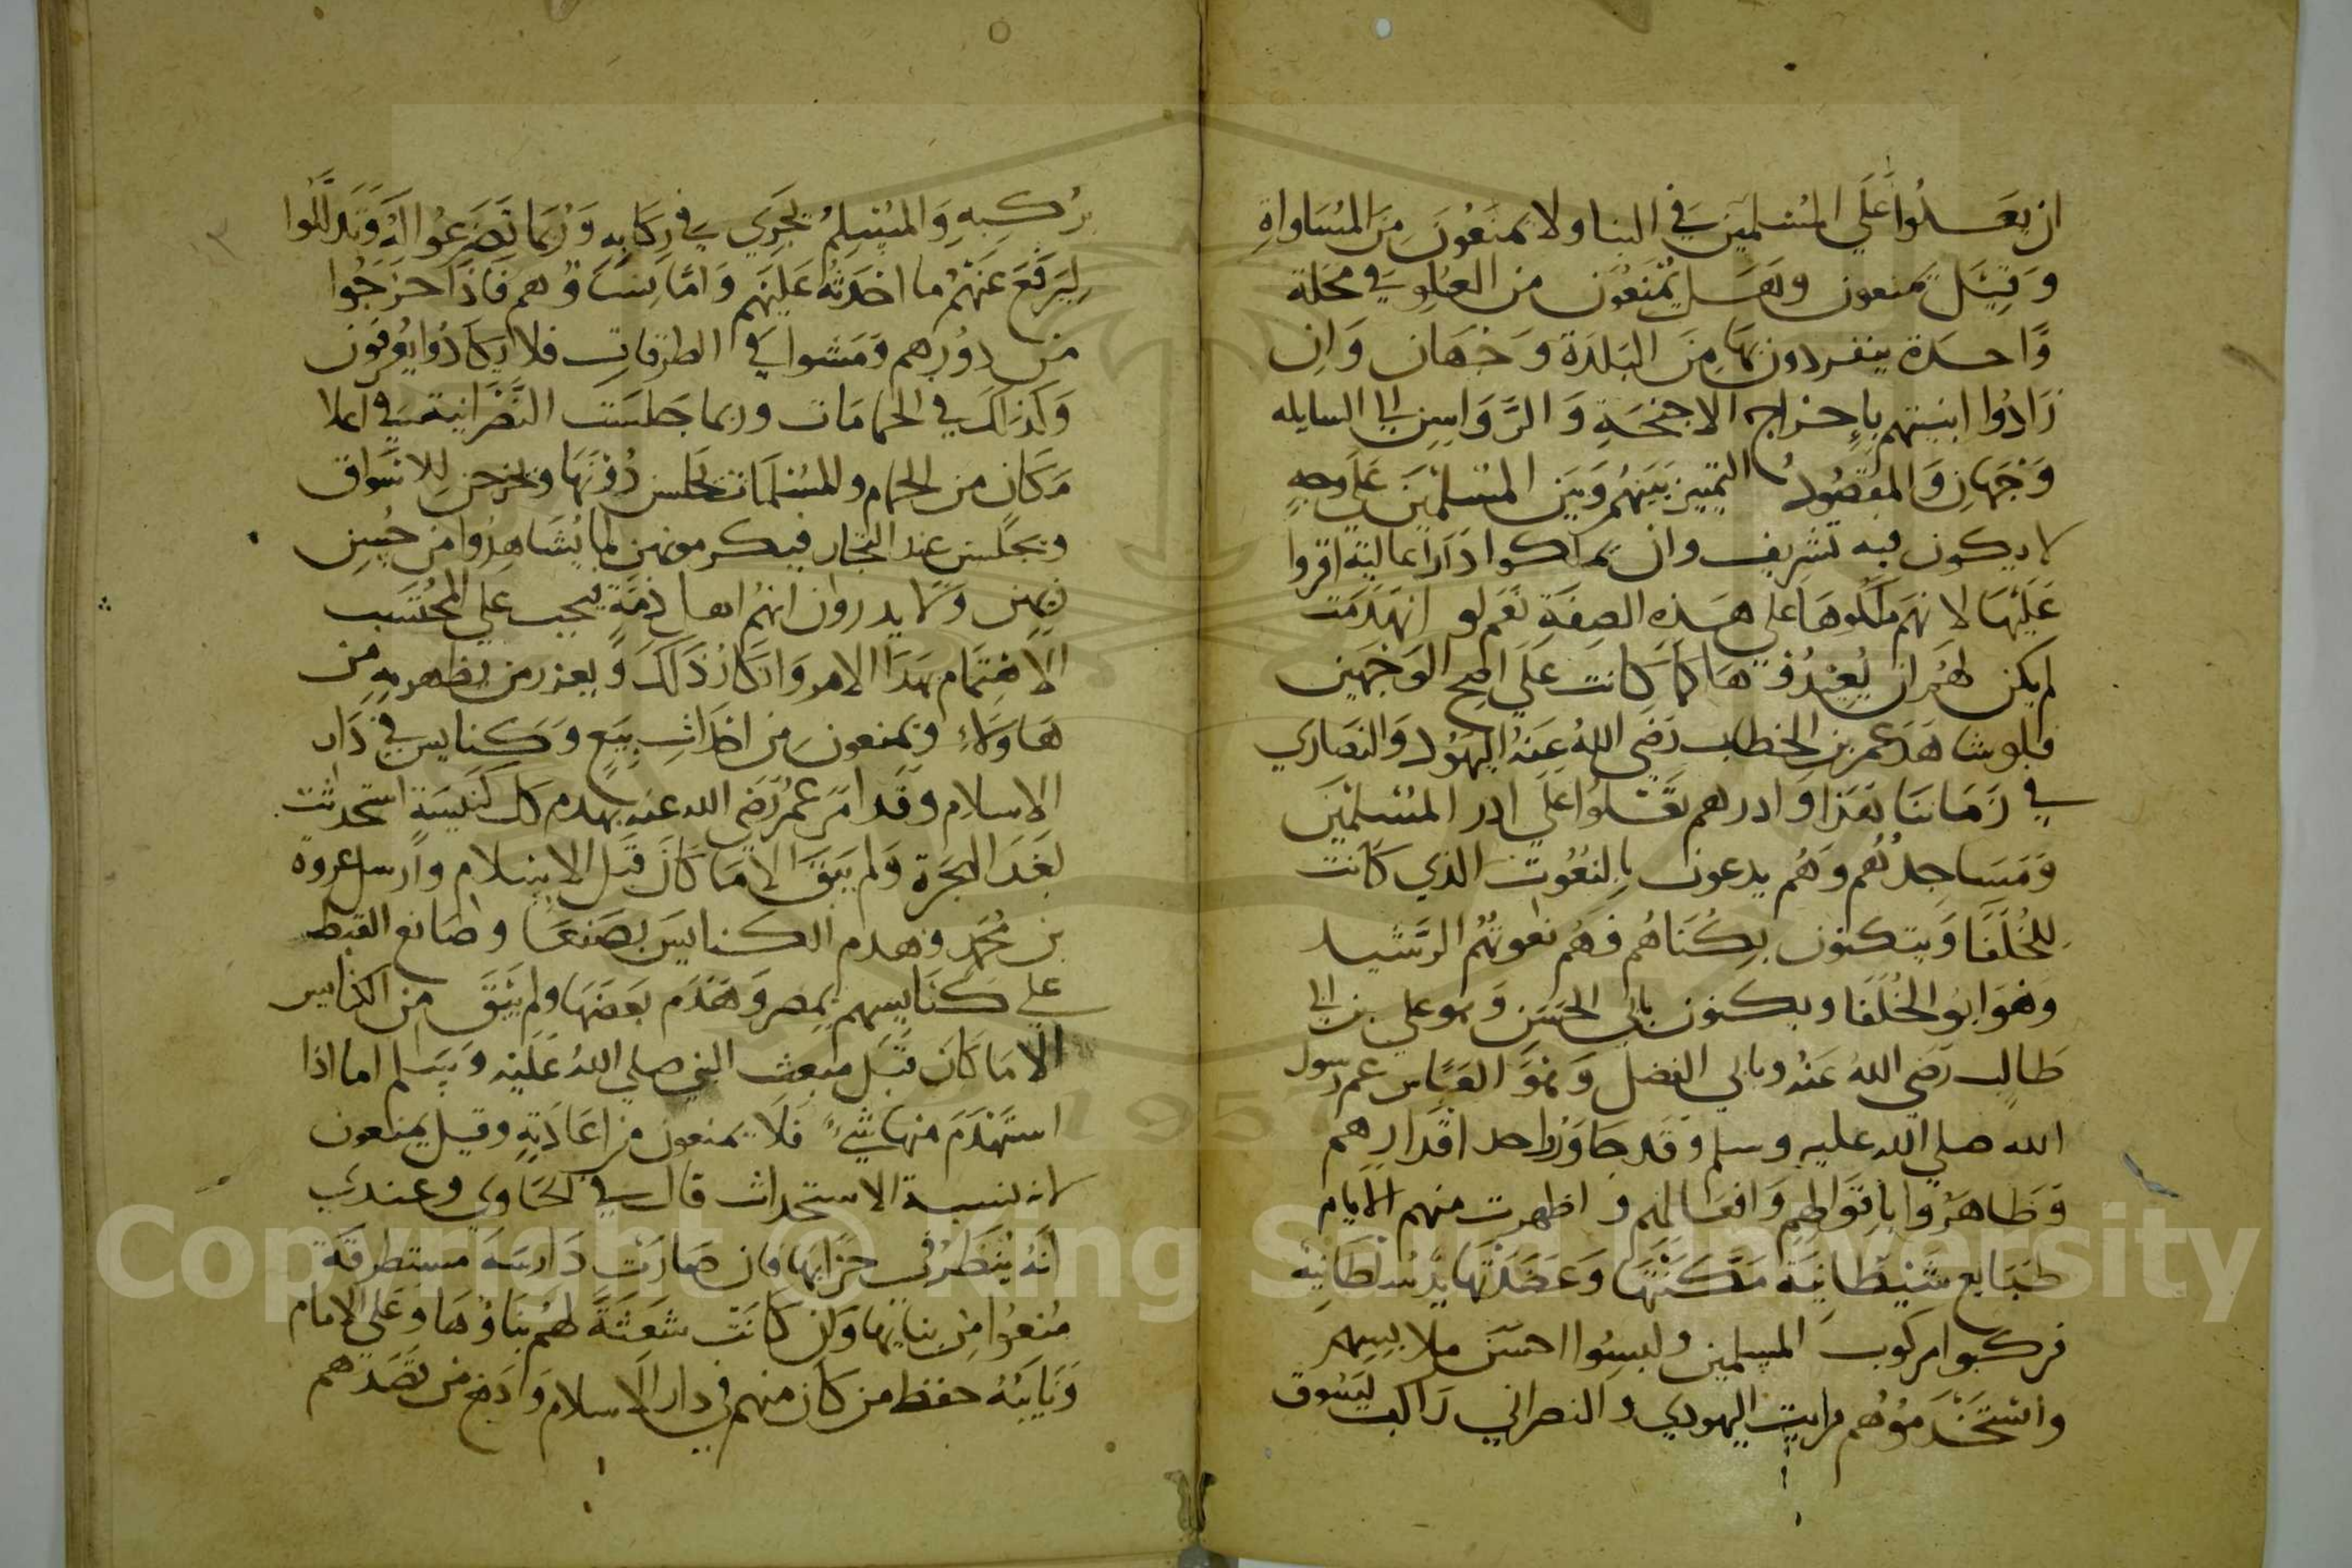 ان يعلوا علي المسلمين في البنا ولا يمنعون من المساواة
وقيل يمنعون وهل يمنعون من العلو في محلة
واحدة ينفردون بها من البلدة وجهان وان
زادوا ابنيتهم باخراج الاجنحة والرواسن الي السابله
وجهان والمقصود التمييز بينهم وبين المسلمين علي وجه
لا يكون فيه تشريف وان تملكوا دارا عالية اقروا
عليها لانهم ملكوها علي هذه الصفة نعم لو انهدمت
لم يكن لهم ان يعيدوها كما كانت علي اصح الوجهين
فلو شاهد عمر بن الخطاب رضي الله عنه اليهود والنصاري
في زماننا هذا وادرهم تعلوا علي ادر المسلمين
ومساجدهم وهم يدعون بالنعوت الذي كانت
للخلفا ويتكنون بكناهم فهم نعوتهم الرشيد
وهو ابو الخلفا ويكنون بابي الحسن وهو علي بن ابي
طالب رضي الله عنه وبابي الفضل وهو العباس عم رسول
الله صلي الله عليه وسلم وقد جاوزوا حد اقدارهم
وظاهروا باقوالهم وافعالهم واظهرت منهم الايام
طبايع شيطانية مكنتها وعضدتها يد سلطانية
فركبوا مركوب المسلمين ولبسوا احسن ملابسهم
واستخدموهم فرايت اليهودي والنصراني راكب ليسوق
مركبه والمسلم يجري في ركابه وربما تضرعوا اليه وتذللوا
ليرفع عنهم ما احدثه عليهم واما نساوهم فاذا خرجوا
من دورهم ومشوا في الطرقات فلا يكادوا يعرفون
وكذلك في الحمامات وربما جلست النصرانية في اعلا
مكان من الحمام والمسلمات تجلس دونها وتخرجن للاسواق
وتجلسن عند التجار فيكرمونهن لما يشاهدوا من حسن
زيهن ولا يدروان انهم اهل ذمة فيجب علي المحتسب
الاهتمام بهذا الامر وانكار ذلك ويعزر من يظهر به من
هاولاء ويمنعون من احداث بيع وكنايس في دار
الاسلام وقد امر عمر رضي الله عنه بهدم كل كنيسة استحدثت
بعد الهجرة ولم يبق الا ما كان قبل الاسلام وارسل عروة
بن محمد وهدم الكنايس بصنعا وصانع القبط
علي كنايسهم بمصر وهدم بعضها ولم يبق من الكنايس
الا ما كان قبل مبعث النبي صلي الله عليه وسلم اما اذا
استهدم منها شيء فلا يمنعون من اعادته وقيل يمنعون
لانه نسبة الاستحداث قال في الحاوي وعندي
انه ينظر في خرابها فان صارت دارسة مستطرقة
منعوا من بنايها وان كانت شعثة لهم بناوها وعلي الامام
ونايبه حفظ من كان منهم في دار الاسلام وادفع من قصدهم
١٣
Copyright © King Saud University
1957